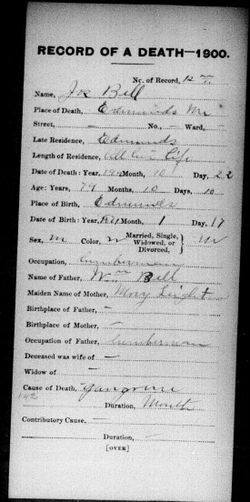 RECORD OF A DEATH—1900.
No. of Record,
Name, Jos Bell
Place of Death, Edmunds Me
Street, — No., — Ward,
Late Residence, Edmunds
Length of Residence, all Life
Date of Death: Year, 190 Month, 10 Day, 22
Age: Years, 79 Months, 10 Days, 10
Place of Birth, Edmunds
Date of Birth: Year, Month, 1 Day, 17
Sex, M Color, W Married, Single, Widowed, or Divorced } M
Occupation, Lumberman
Name of Father, Wm Bell
Maiden Name of Mother, Mary
Birthplace of Father, —
Birthplace of Mother, —
Occupation of Father, Lumberman
Deceased was wife of —
Widow of —
Cause of Death, Gangrene
142
Duration, Month
Contributory Cause. —
Duration, —
[OVER]